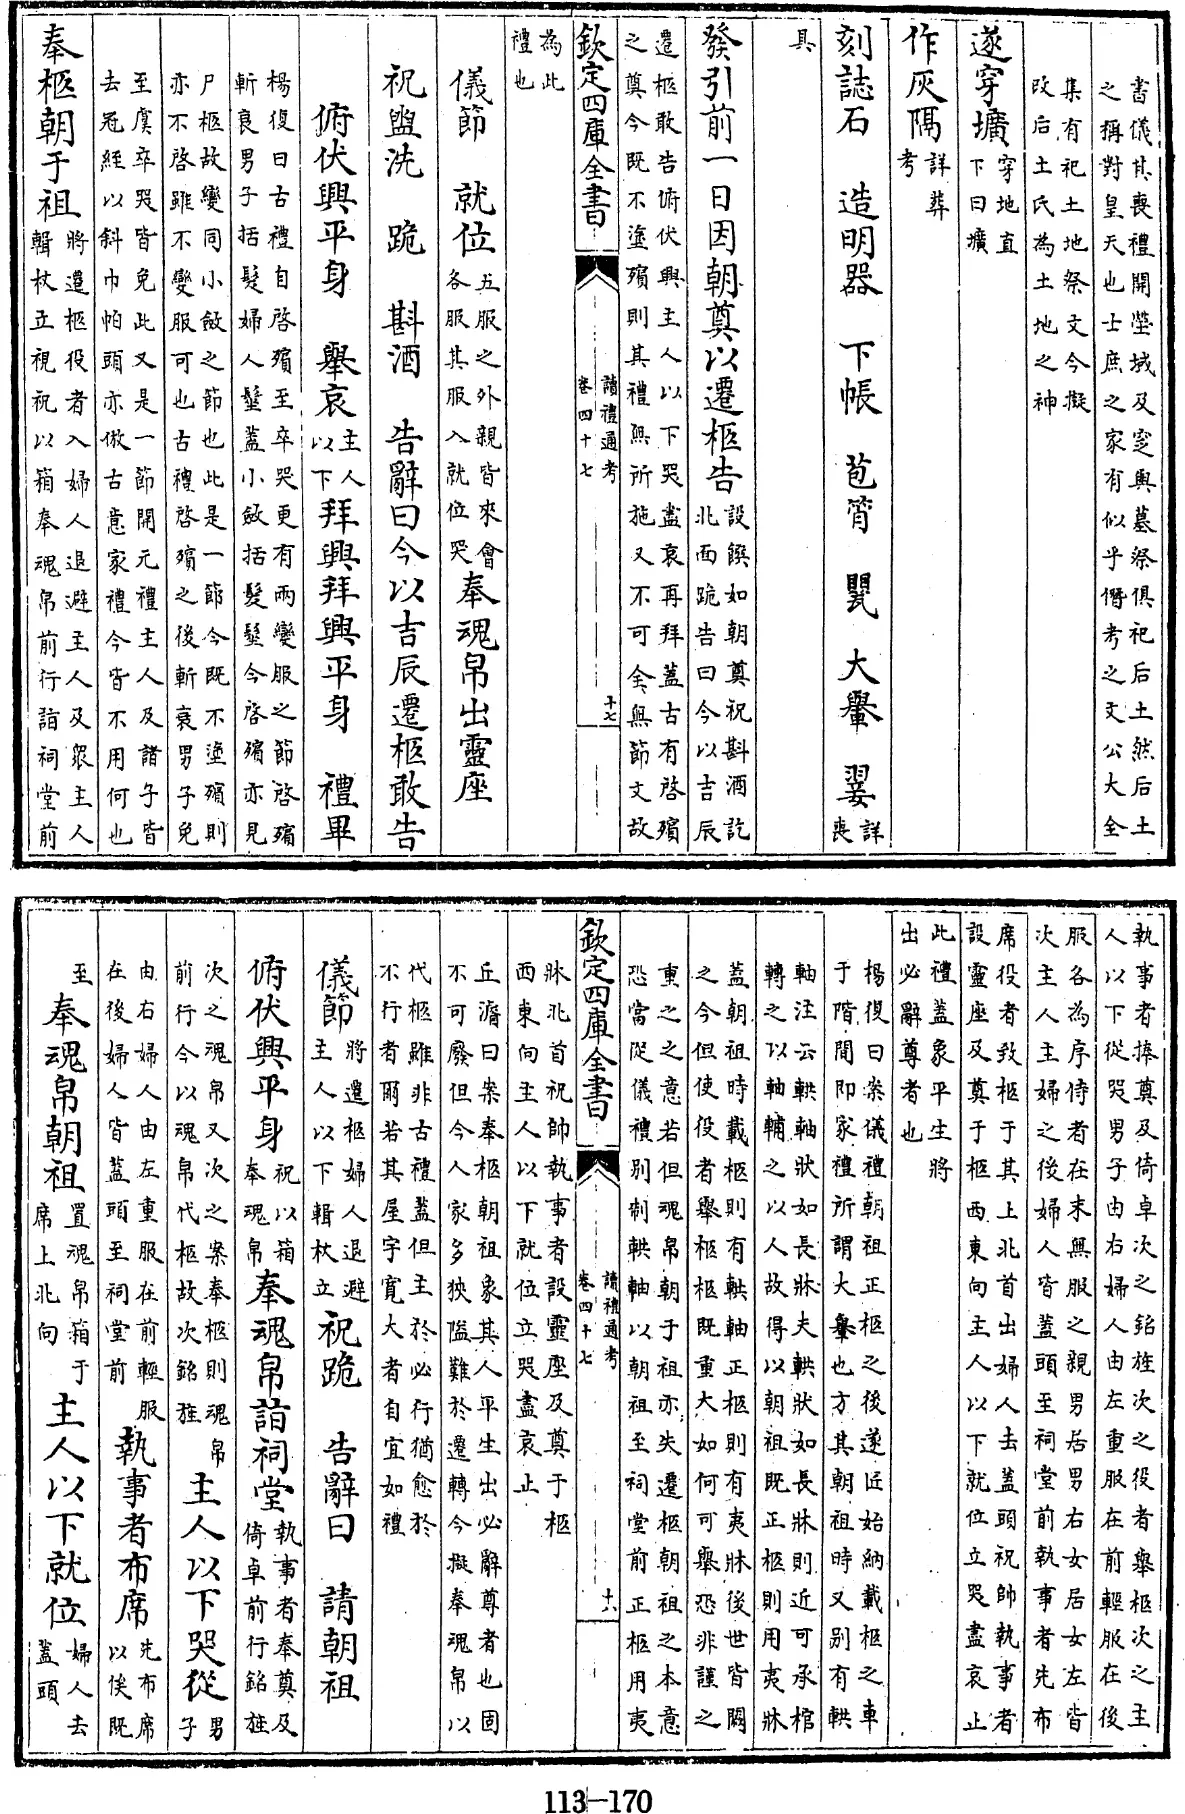 書儀其喪禮開塋域及窆與墓祭俱祀后土然后土
之稱對皇天也士庶之家有似乎僭考之文公大全
集有祀土地祭文今擬
改后土氏為土地之神
遂穿壙穿地直下曰壙
作灰隔詳葬考
刻誌石 造明器 下帳 苞筲 甖 大轝 翣詳喪
具
發引前一日因朝奠以遷柩告設饌如朝奠祝斟酒訖北面跪告曰今以吉辰
遷柩敢告俯伏興主人以下哭盡哀再拜蓋古有啓殯
之奠今既不塗殯則其禮無所施又不可全無節文故
欽定四庫全書 讀禮通考 卷四十七 十七
為此
禮也
儀節 就位五服之外親皆來會各服其服入就位哭奉魂帛出靈座
祝盥洗 跪 斟酒 告辭曰今以吉辰遷柩敢告
俯伏興平身 舉哀主人以下拜興拜興平身 禮畢
楊復曰古禮自啓殯至卒哭更有兩變服之節啓殯
斬衰男子括髮婦人髽蓋小斂括髮髽今啓殯亦見
尸柩故變同小斂之節也此是一節今既不塗殯則
亦不啓雖不變服可也古禮啓殯之後斬衰男子免
至虞卒哭皆免此又是一節開元禮主人及諸子皆
去冠絰以斜巾帕頭亦倣古意家禮今皆不用何也
奉柩朝于祖將遷柩役者入婦人退避主人及衆主人輯杖立視祝以箱奉魂帛前行詣祠堂前
執事者捧奠及倚卓次之銘旌次之役者舉柩次之主
人以下從哭男子由右婦人由左重服在前輕服在後
服各為序侍者在末無服之親男居男右女居女左皆
次主人主婦之後婦人皆蓋頭至祠堂前執事者先布
席役者致柩于其上北首出婦人去蓋頭祝帥執事者
設靈座及奠于柩西東向主人以下就位立哭盡哀止
此禮蓋象平生將
出必辭尊者也
楊復曰案儀禮朝祖正柩之後遂匠始納載柩之車
于階間即家禮所謂大轝也方其朝祖時又别有輁
軸注云輁軸狀如長牀夫輁狀如長牀則近可承棺
轉之以軸輔之以人故得以朝祖既正柩則用夷牀
蓋朝祖時載柩則有輁軸正柩則有夷牀後世皆闕
之今但使役者舉柩柩既重大如何可舉恐非謹之
重之之意若但魂帛朝于祖亦失遷柩朝祖之本意
恐當從儀禮别制輁軸以朝祖至祠堂前正柩用夷
欽定四庫全書 讀禮通考 卷四十七 十八
牀北首祝帥執事者設靈座及奠于柩
西東向主人以下就位立哭盡哀止
丘濬曰案奉柩朝祖象其人平生出必辭尊者也固
不可廢但今人家多狹隘難於遷轉今擬奉魂帛以
代柩雖非古禮蓋但主於必行猶愈於
不行者爾若其屋宇寬大者自宜如禮
儀節將遷柩婦人退避主人以下輯杖立祝跪 告辭曰 請朝祖
俯伏興平身祝以箱奉魂帛奉魂帛詣祠堂執事者奉奠及倚卓前行銘旌
次之魂帛又次之案奉柩則魂帛前行今以魂帛代柩故次銘旌主人以下哭從男子
由右婦人由左重服在前輕服在後婦人皆蓋頭至祠堂前執事者布席先布席以俟既
至奉魂帛朝祖置魂帛箱于席上北向主人以下就位婦人去蓋頭
113-170